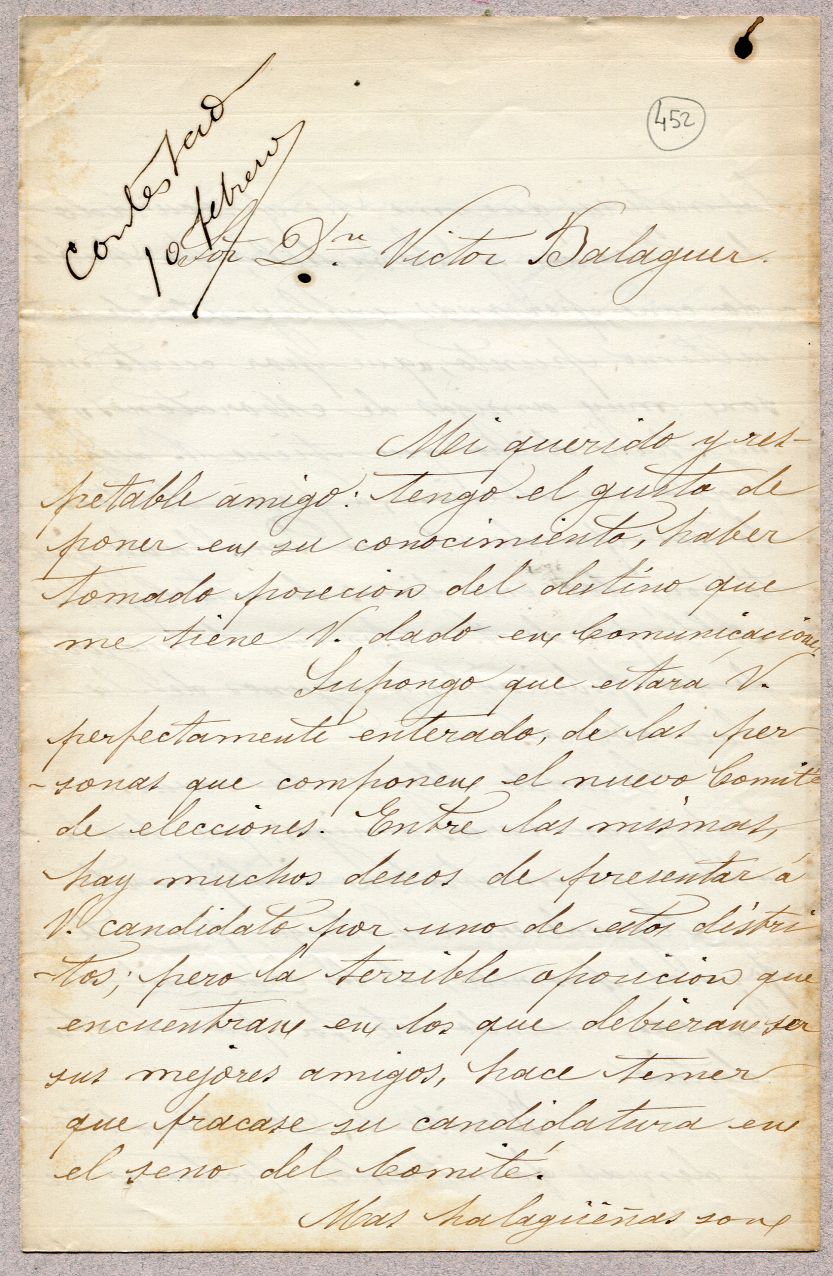 Contestad
10 febrero
452
Sor Dn. Victor Balaguer.
Mi querido y res-
petable amigo: tengo el gusto de
poner en su conocimiento, haber
tomado posecion del destino que
me tiene V. dado en Comunicaciones.
Supongo que estará V.
perfectamente enterado, de las per
-sonas que componen el nuevo Comité
de elecciones. Entre las mismas,
hay muchos deseos de presentar á
V. candidato por uno de estos distri
-tos; pero la terrible oposicion que
encuentran en los que debieran ser
sus mejores amigos, hace temer
que fracase su candidatura en
el seno del Comité.
Mas halagüeñas son